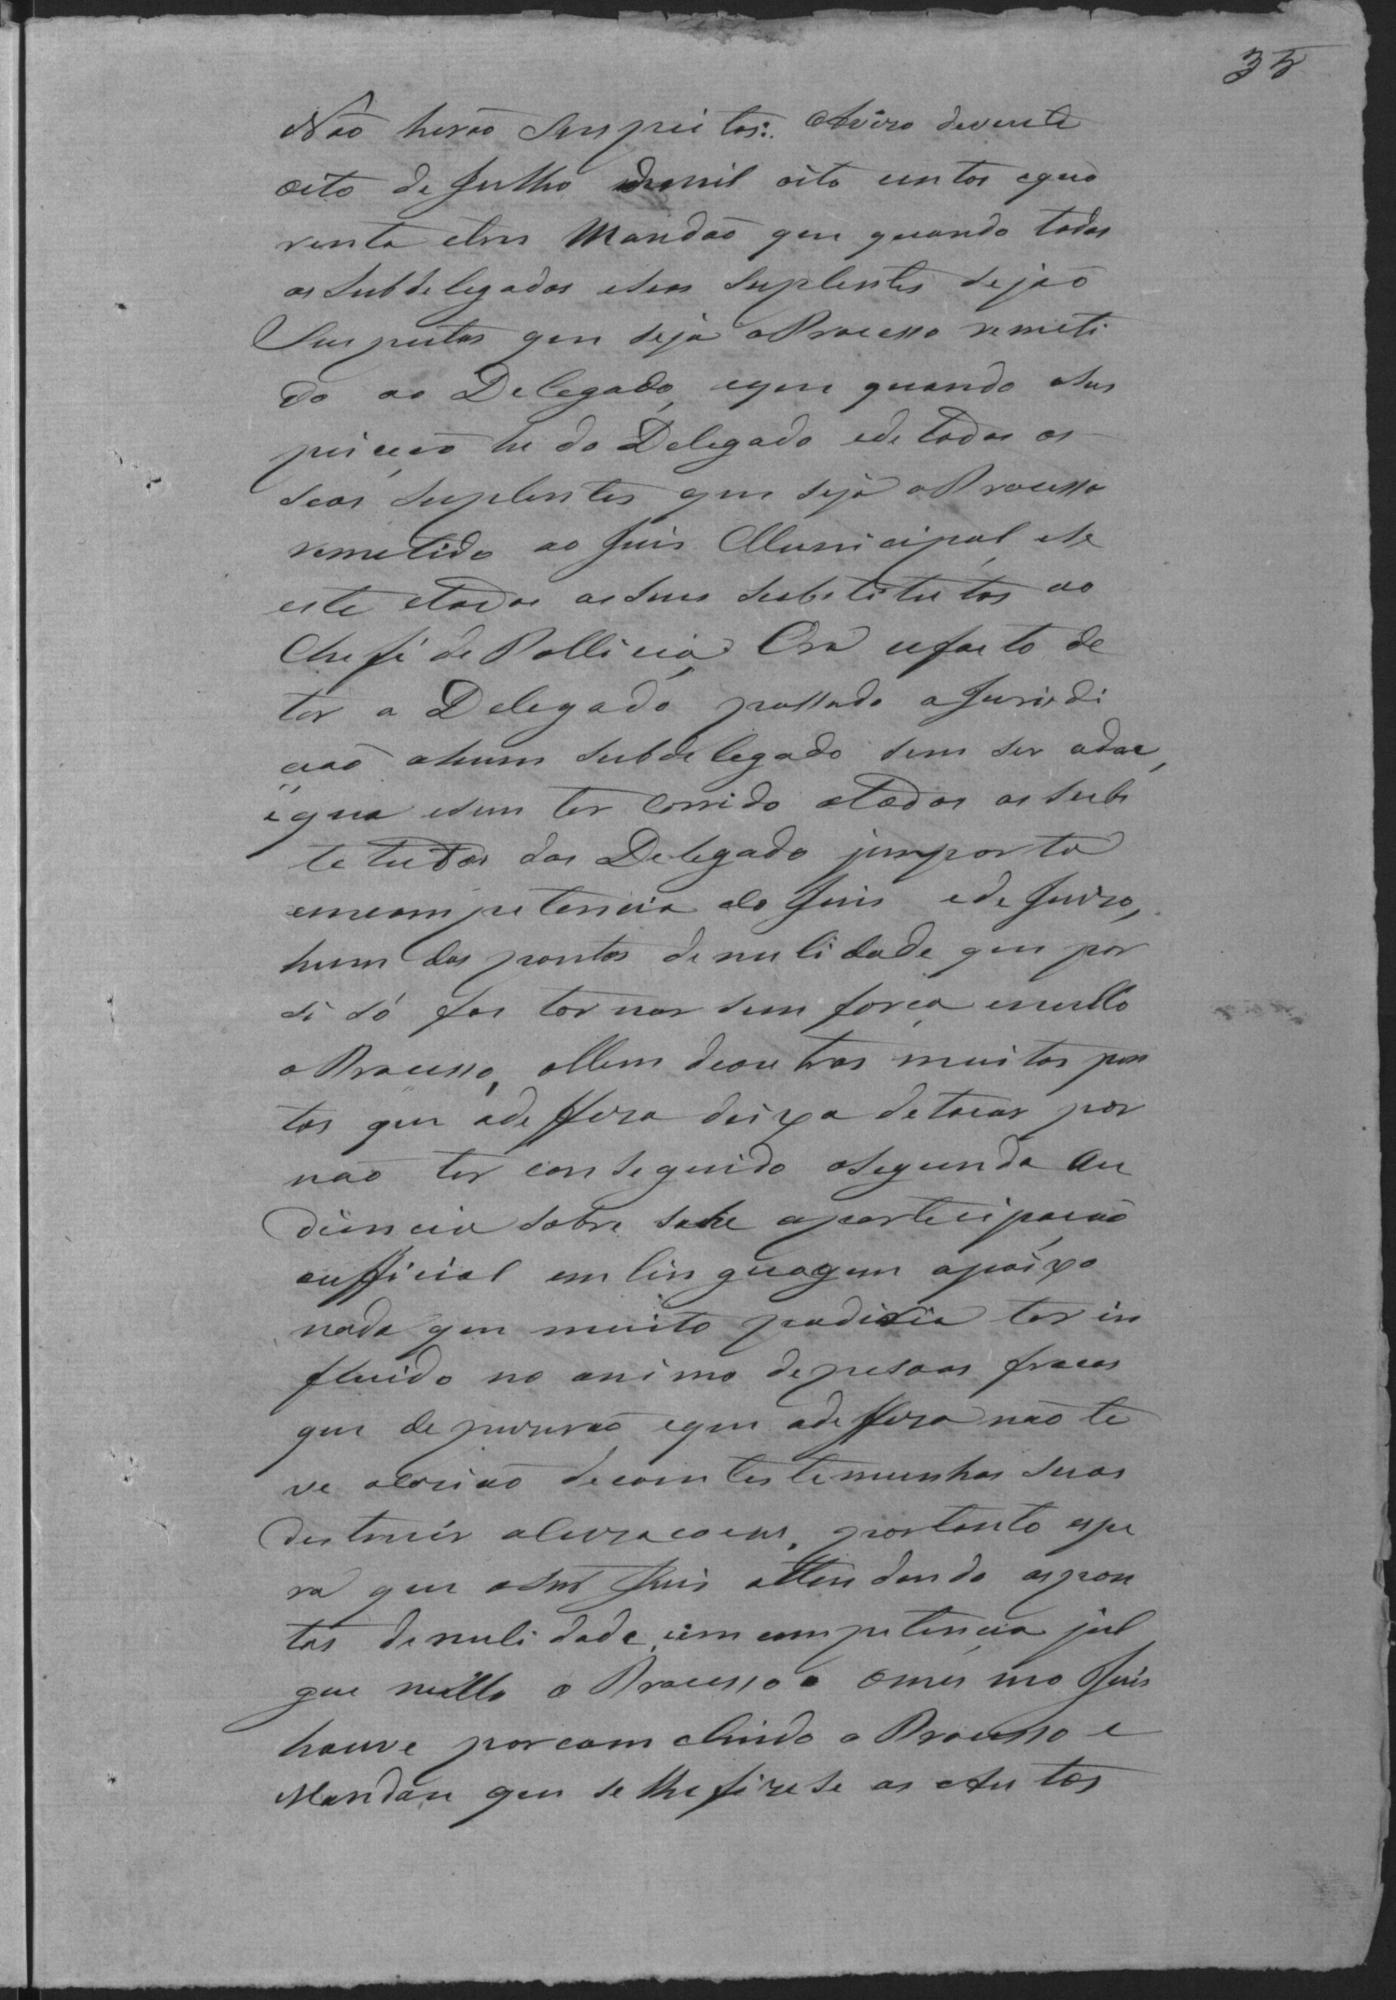 35
Não herão suspeitos: Avizo devente
oito de Julho demil oito centos equa
renta edous Mandão que quando todos
os Subdelegados eseos suplentes sejão
Suspeitos que seja oProcesso remeti
do ao Delegado, eque quando asus
peicção he do Delegado ede todos os
seos suplentes que seja oProcesso
remetido ao Juis Municipal, ese
este etodos os seus substitutos ao
Chefe de Pollicia, Ora ofacto de
ter o Delegado passado aJurisdi
cção ahum subdelegado sem ser oda
e sem ter corrido atodos os subs
tetutos dos Delegado importa
emcompetencia do Juis ede Juizo,
hum dos pontos de nulidade que por
si só fas tornar sem força enullo
o Processo, allem deoutros muitos pon
tos que adeffeza deixa detocar por
não ter conseguido asegunda Au
diencia sobre sobre aparticipação
oufficial em linguagem apaixo
nada que muito podiria ter in
fluido no animo depesoas fracas
que depuzerão, eque adeffeza não te
ve ocazião decom testemunhas suas
destruir aluzacoens, portanto espe
ra que oSnr Juis attendendo aspon
tos denulidade, eim competencia jul
gue nullo o Processo e omesmo Juis
houve por com cluido o Processo e
Mandou que se lhe fizese os Autos